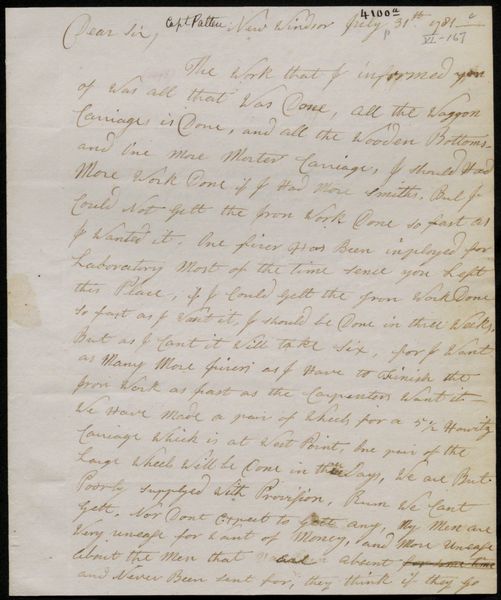 4100a
Dear Sir, Capt Patten New Windsor July 31th 1781
VI-167
The Work that I informed you
of Was all that Was Done, all the Waggon
Carriages is Done, and all the Wooden Bottoms
and One More Morter Carriage, I Should Had
More Work Done if I Had More Smiths. But I
Could Not Gett the Iron Work Done so fast as
I Wanted it. One firer Has Been inployed for
Laboratory Most of the time sence you Left
this Place, if I Could Gett the Iron Work Done
so fast as I Want it, I should be Done in three Weeks,
But as I Cant it Will take Six, for I Want
as Many More firers as I Have to Finish the
Iron Work as fast as the Carpenters Want it—
We Have Made a pair of Wheels for a 5½ Howitz
Carriage Which is at West Point, One pair of the
Large Wheels Will be Done in three Days, We are But
Poorly supplyed With Provision, Rum We Cant
Gett. Nor Dont Expect to Gett any, My Men are
Very uneasy for Want of Money, and More Uneasy
about the Men that are absent for some time
and Never Been sent for, they think if they Go